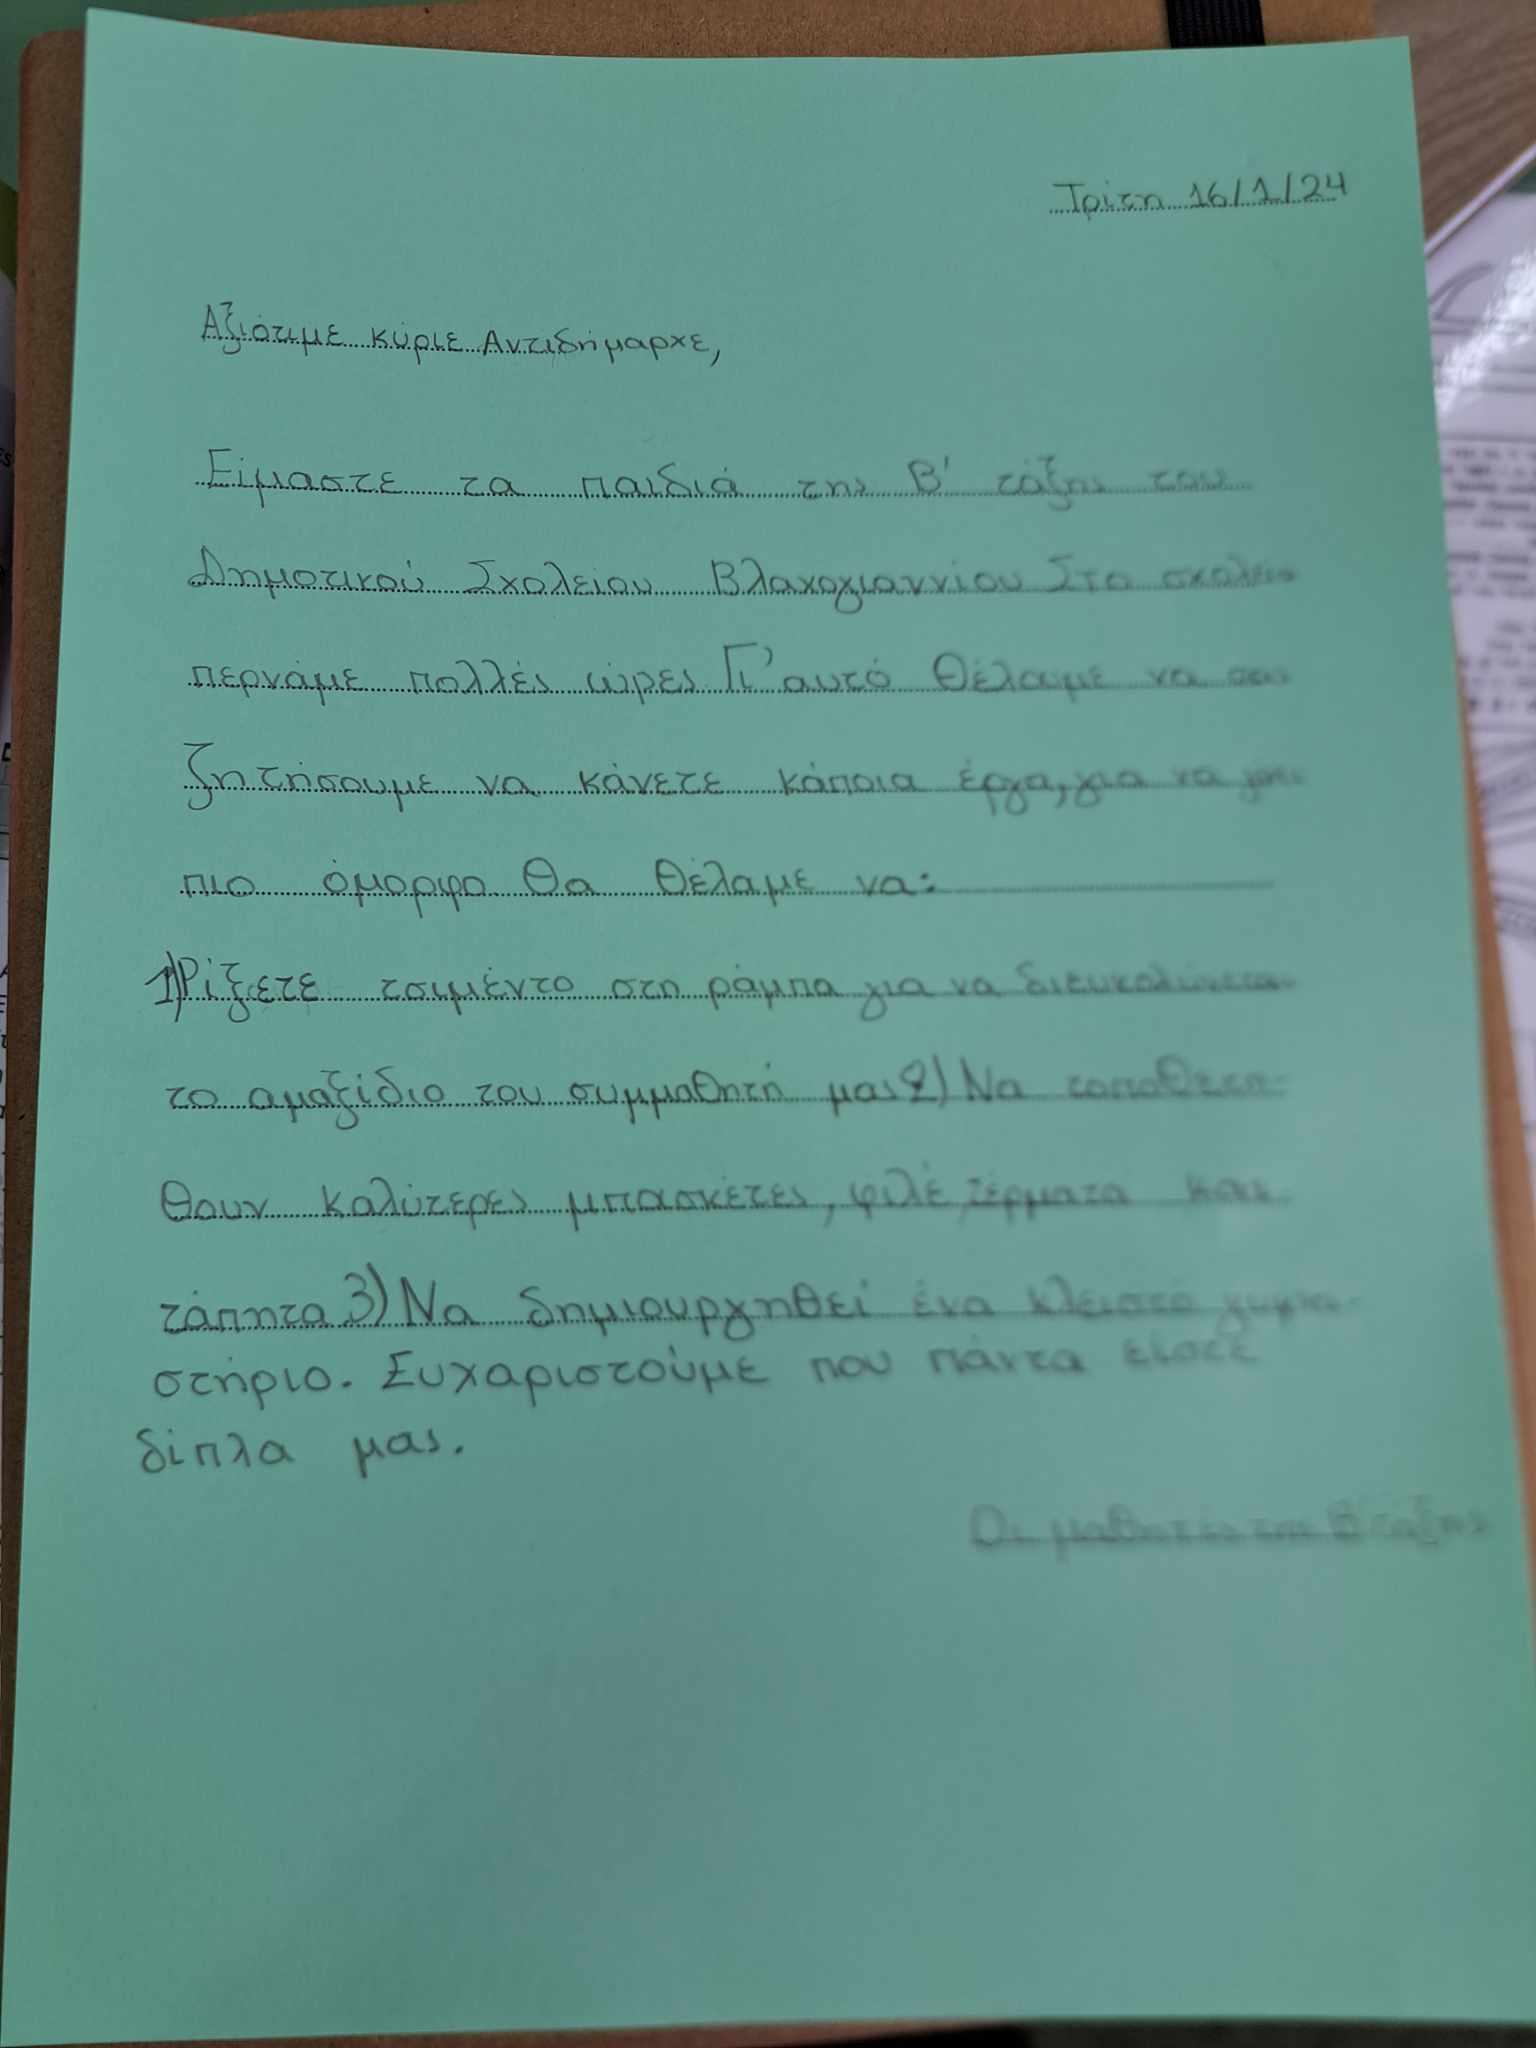 Τρίτη 16/1/24
Αξιότιμε κύριε Αντιδήμαρχε,
Είμαστε τα παιδιά της Β' τάξης του
Δημοτικού Σχολείου Βλαχογιαννίου Στο σχολείο
περνάμε πολλές ώρες Γι' αυτό θέλαμε να σας
ζητήσουμε να κάνετε κάποια έργα, για να
πιο όμορφο Θα θέλαμε να:
1) Ρίξετε τσιμέντο στη ράμπα για να διευκολύνεται
το αμαξίδιο του συμμαθητή μας 2) Να τοποθετη-
θουν καλύτερες μπασκέτες, φιλέ, τέρματα και
τάπητα 3) Να δημιουργηθεί ένα κλειστό γυμνα-
στήριο. Ευχαριστούμε που πάντα είστε
δίπλα μας.
Οι μαθητές της Β τάξης